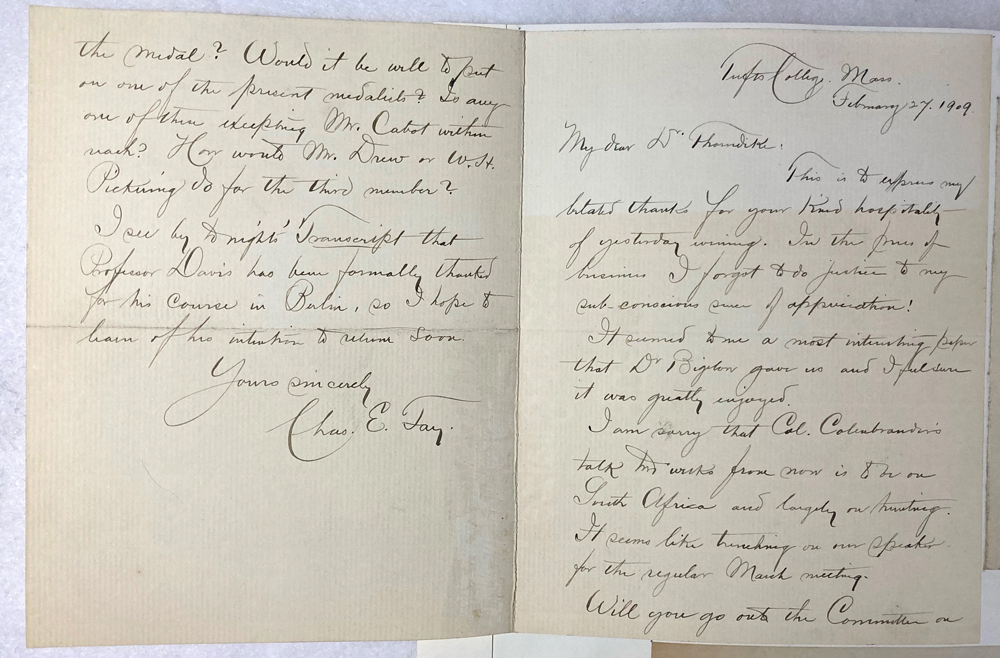 Tufts College. Mass.
February 27. 1909.
My dear Dr. Thorndike:
This is to express my
belated thanks for your kind hospitality
of yesterday evening. In the press of
business I forgot to do justice to my
sub-conscious sense of appreciation!
It seemed to me a most interesting paper
that Dr Bigelow gave us and I feel sure
it was greatly enjoyed.
I am sorry that Col. Colenbrander's
talk two weeks from now is to be on
South Africa and largely on hunting.
It seems like trenching on our speaker
for the regular March meeting.
Will you go onto the Committee on
the medal? Would it be well to put
on one of the present medalists? Is any
one of them excepting Mr. Cabot within
reach? How would Mr. Drew or W. H.
Pickering do for the third member?
I see by to nights' Transcript that
Professor Davis has been formally thanked
for his course in Berlin, so I hope to
learn of his intention to return soon.
Yours sincerely
Chas. E. Fay.